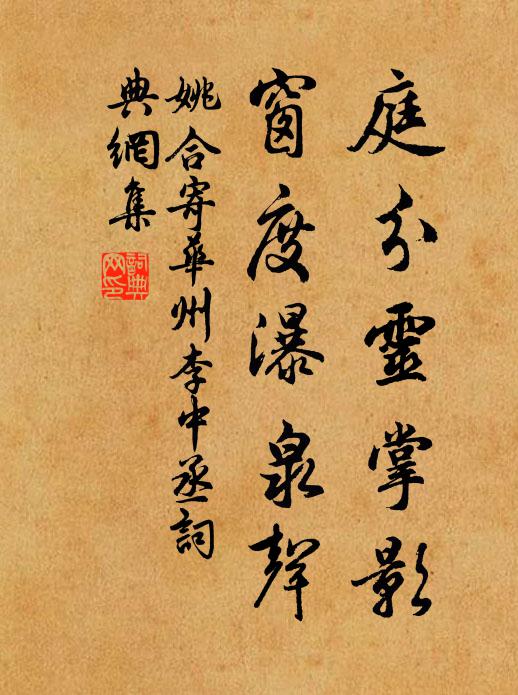 庭分靈掌影
窗度瀑泉聲
姚合寄華州李中丞詞
典網集
詞典網印